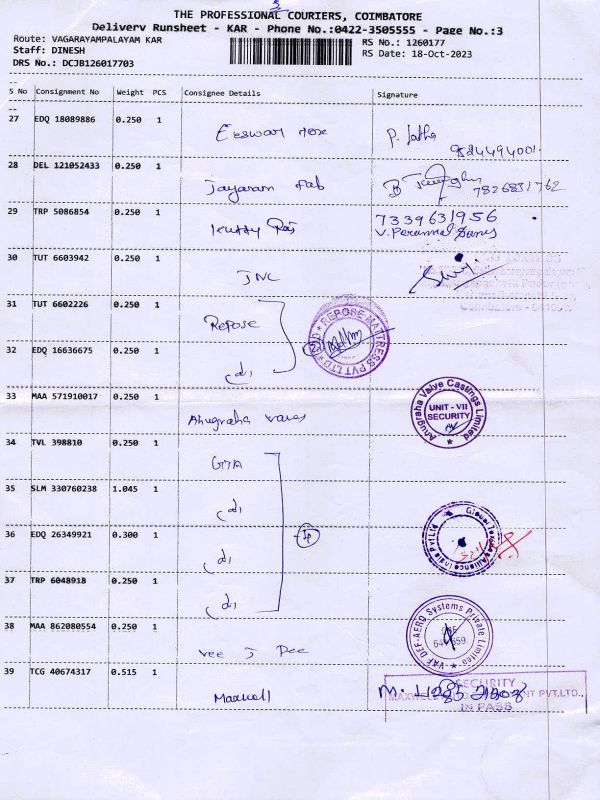 THE PROFESSIONAL COURIERS, COIMBATORE
Delivery Runsheet - KAR - Phone No.:0422-3505555 - Page No.:3
Route: VAGARAYAMPALAYAM KAR
RS No.: 1260177
Staff: DINESH
RS Date: 18-Oct-2023
DRS No.: DCJB126017703
S No Consignment No Weight PCS Consignee Details Signature
27 EDQ 18089886 0.250 1
9244494001
28 DEL 121052433 0.250 1 Jayaram Fab
7826831762
29 TRP 5086854 0.250 1 Kutty Raj 7339631956
V. Perumal Samy
30 TUT 6603942 0.250 1 JNC
31 TUT 6602226 0.250 1 Repose
REPOSE MATTRESS PVT LTD
32 EDQ 16636675 0.250 1 (d)
33 MAA 571910017 0.250 1 Anugraha Valves
Anugraha Valve Castings Limited
UNIT - VII
SECURITY
34 TVL 398810 0.250 1 GTA
35 SLM 330760238 1.045 1 (d)
36 EDQ 26349921 0.300 1 (d)
Alliance India Pvt Ltd
37 TRP 6048918 0.250 1 (d)
38 MAA 862080554 0.250 1 Vee J Pee
VAF DEF-AERO Systems Private Limited
39 TCG 40674317 0.515 1 Maxwell
SECURITY
PVT.LTD.,
IN PASS